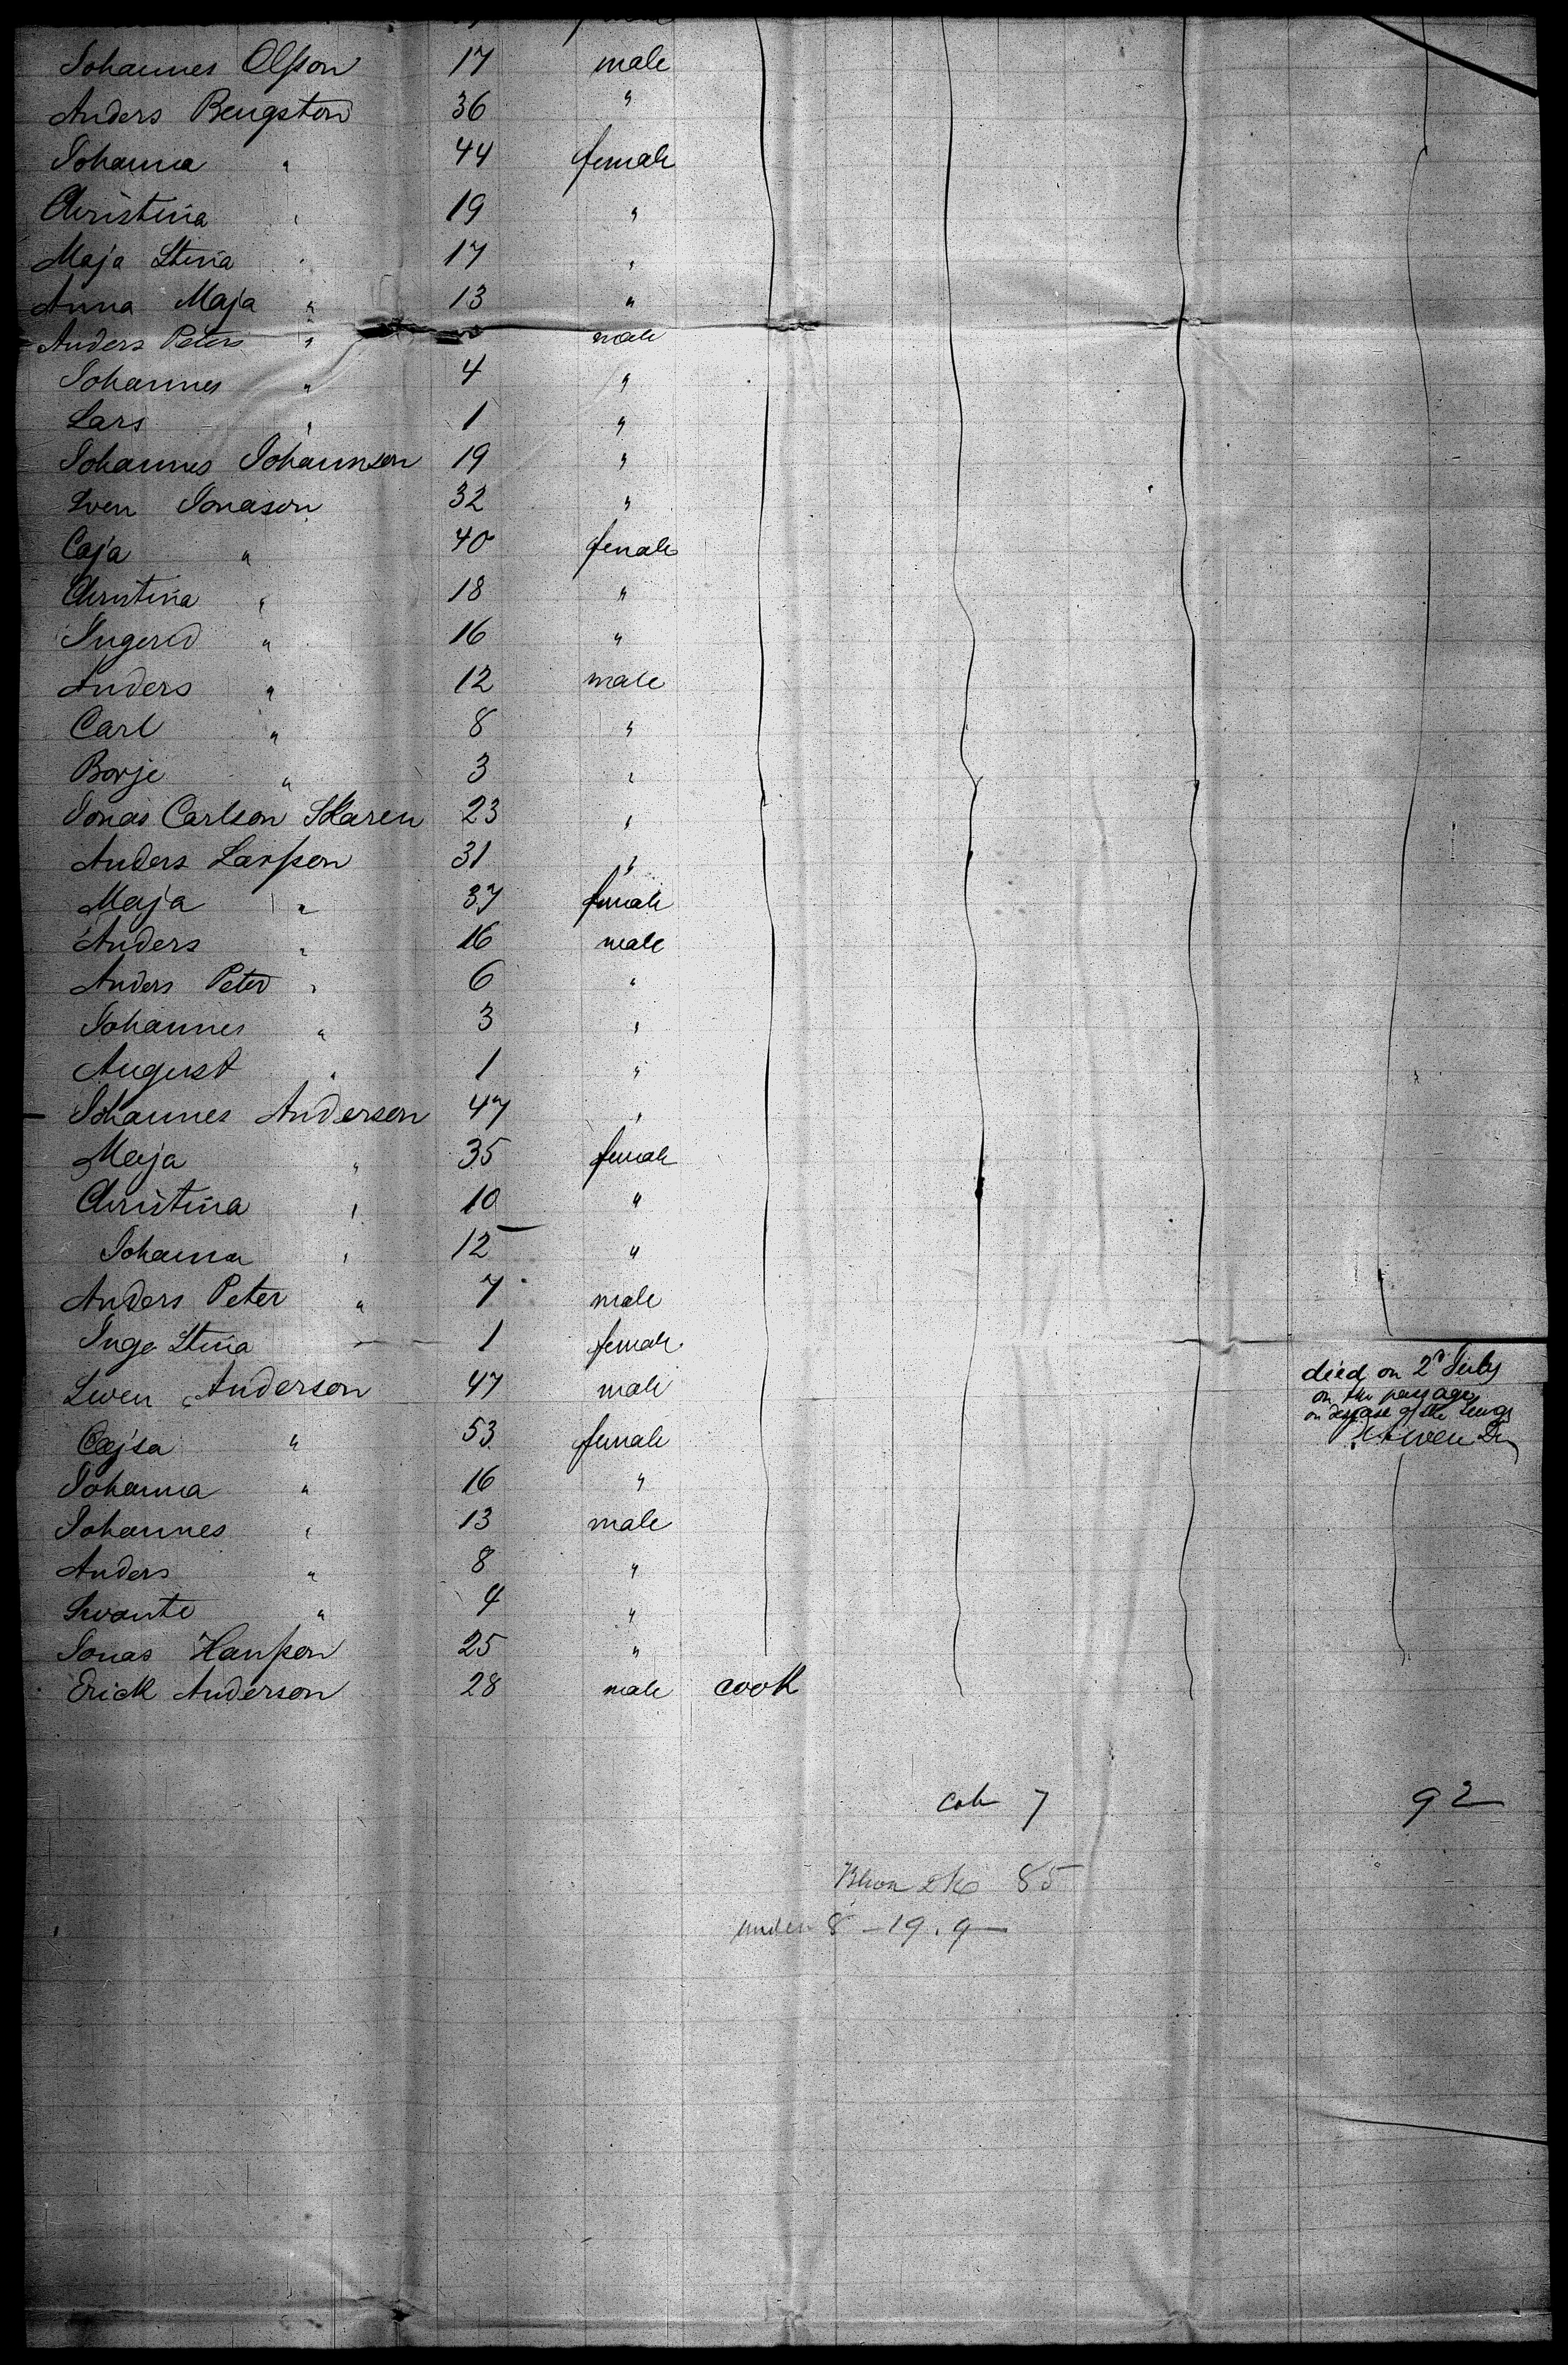 Johannes Olsson 17 male
Anders Bengtson 36 "
Johanna " 44 female
Christina " 19 "
Maja Stina " 17 "
Anna Maja " 13 "
Anders Peter " male
Johannes " 4 "
Lars " 1 "
Johannes Johannson 19 "
Sven Jonason 32 "
Caja " 40 female
Christina " 18 "
Ingerd " 16 "
Anders " 12 male
Carl " 8 "
Borje " 3 "
Jonas Carlson Skaren 23 "
Anders Larsson 31 "
Maja " 37 female
Anders " 16 male
Anders Peter " 6 "
Johannes " 3 "
August " 1 "
Johannes Anderson 47 "
Maja " 35 female
Christina " 10 "
Johanna " 12 "
Anders Peter " 7 male
Inga Stina 1 female
Sven Anderson 47 male died on 2d July
on the passage
on desease of the lungs
Cajsa " 53 female
Johanna " 16 "
Johannes " 13 male
Anders " 8 "
Svante " 4 "
Jonas Hansson 25 "
Erick Anderson 28 male cook
Cab 7 92
85
under 8 - 19. 9